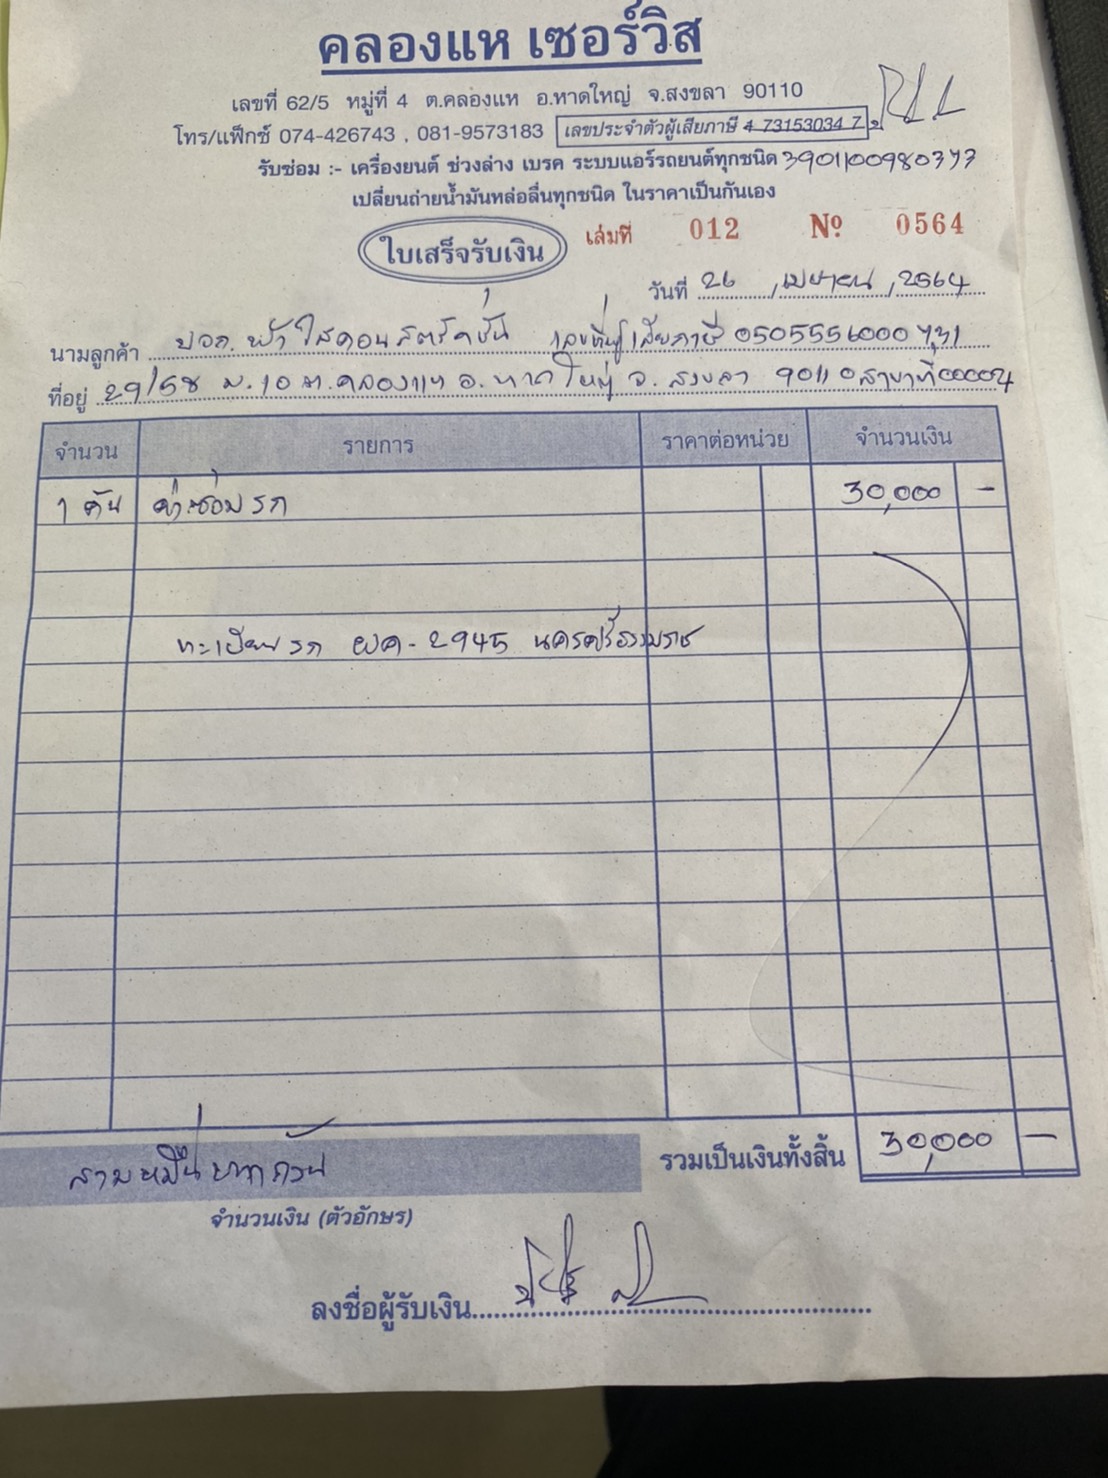 คลองแห เซอร์วิส
เลขที่ 62/5 หมู่ที่ 4 ต.คลองแห อ.หาดใหญ่ จ.สงขลา 90110
โทร/แฟ็กซ์ 074-426743 , 081-9573183 เลขประจำตัวผู้เสียภาษี 4 73153034 7
รับซ่อม :- เครื่องยนต์ ช่วงล่าง เบรค ระบบแอร์รถยนต์ทุกชนิด 3901100980373
เปลี่ยนถ่ายน้ำมันหล่อลื่นทุกชนิด ในราคาเป็นกันเอง
ใบเสร็จรับเงิน เล่มที่ 012 Nº 0564
วันที่ 26 เมษายน 2564
นามลูกค้า บจก.ฟ้าใสคอนสตรัคชั่น เลขที่ผู้เสียภาษี 0505556000731
ที่อยู่ 29/58 ม.10 ต.คลองแห อ.หาดใหญ่ จ.สงขลา 90110 สาขาที่ 00004
จำนวน รายการ ราคาต่อหน่วย จำนวนเงิน
1 คัน ค่าซ่อมรถ 30,000 -
ทะเบียนรถ ผค-2945 นครศรีธรรมราช
สามหมื่นบาทถ้วน รวมเป็นเงินทั้งสิ้น 30,000 -
จำนวนเงิน (ตัวอักษร)
ลงชื่อผู้รับเงิน